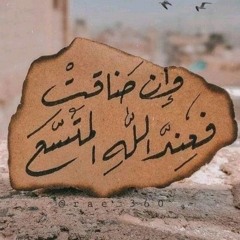 وإن ضاقتْ
فعِندَ اللهِ المتَّسَع
@rac_360